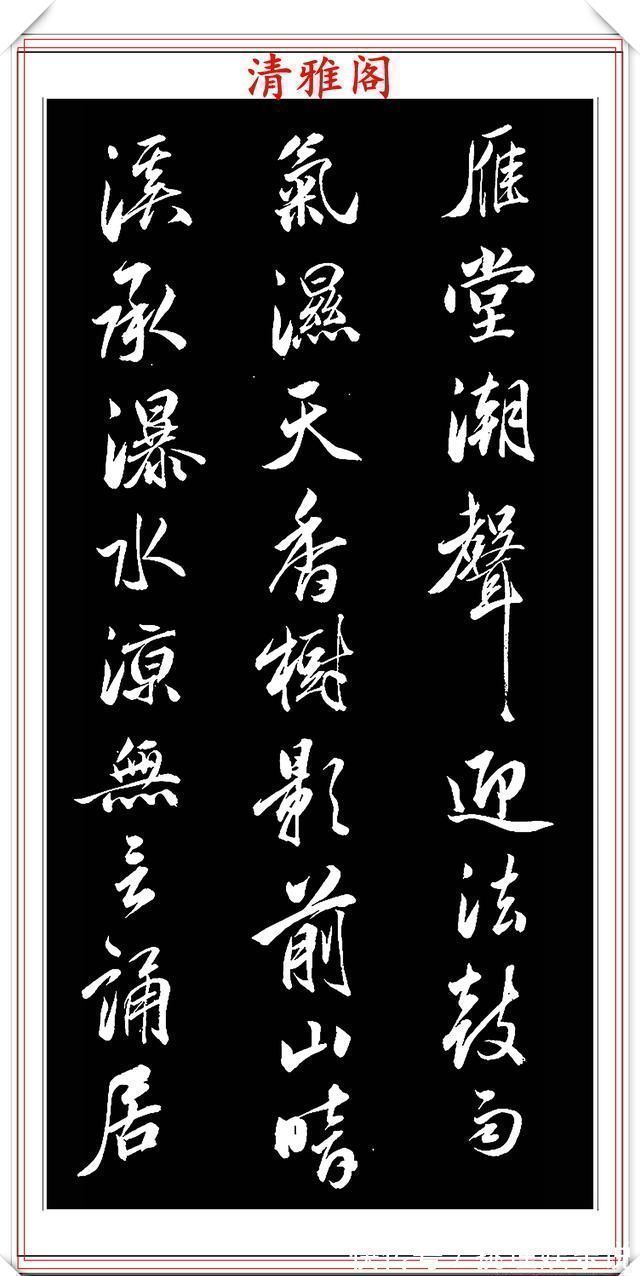 清雅阁
雁堂潮聲迎法鼓雨
氣濕天香樹影前山暗
溪承瀑水涼無言誦居